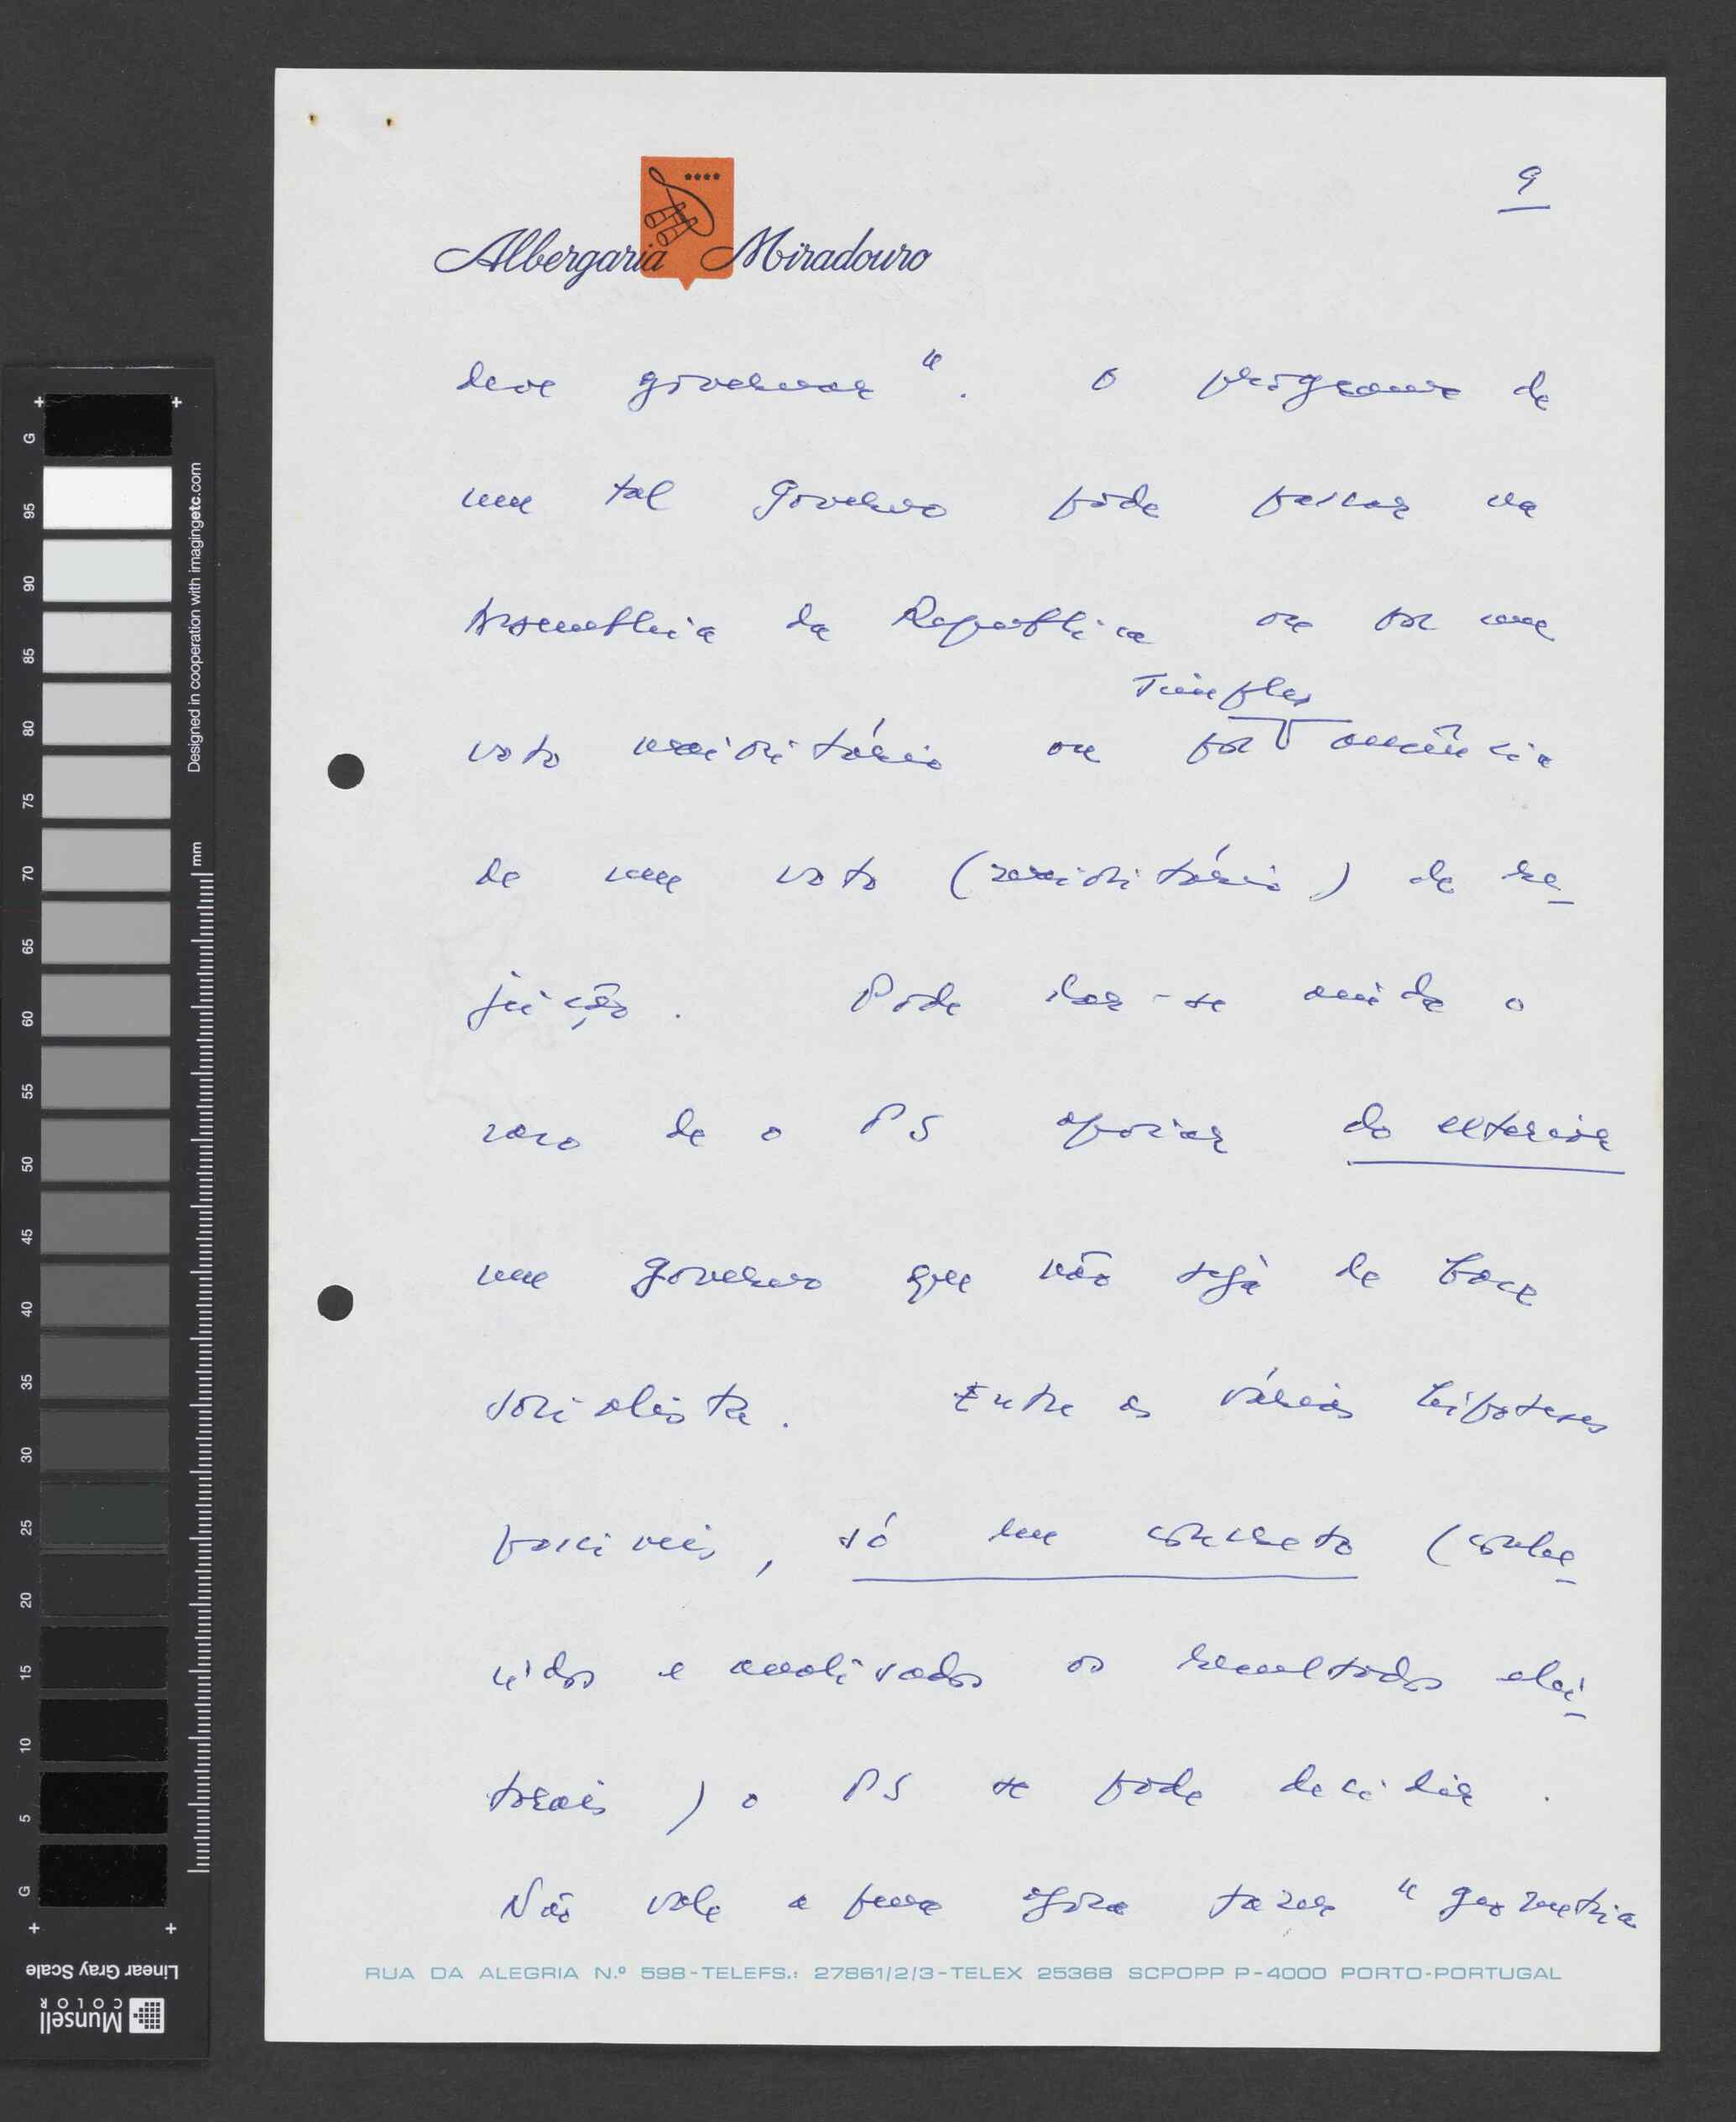 9
Albergaria Miradouro
deve governar". O programa de
um tal Governo pode passar na
Assembleia da República ou por um
simples
voto maioritário ou por ausência
de um voto (maioritário) de re-
jeição. Pode dar-se ainda o
caso de o PS apoiar do exterior
um governo que não seja de base
socialista. Entre as várias hipoteses
possiveis, só em concreto (conhe-
cidos e analisados os resultados elei-
torais) o PS se pode decidir.
Não vale a pena agora fazer "geometria
RUA DA ALEGRIA N.º 598-TELEFS.: 27861/2/3-TELEX 25368 SCPOPP P-4000 PORTO-PORTUGAL
Designed in cooperation with imagingetc.com
mm
G 95 90 85 80 75 70 65 60 55 50 45 40 35 30 25 20 15 10 5 G
Linear Gray Scale
Munsell
COLOR